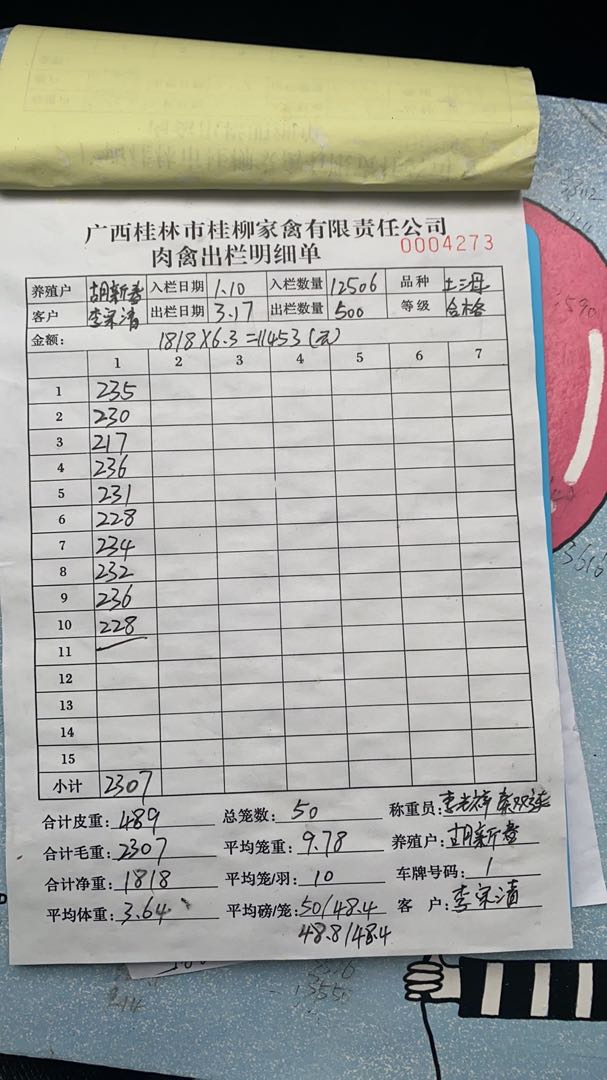 广西桂林市桂柳家禽有限责任公司
肉禽出栏明细单 0004273
养殖户 胡新春 入栏日期 1.10 入栏数量 12506 品种 土二母
客户 李宗清 出栏日期 3.17 出栏数量 500 等级 合格
金额: 1818×6.3=11453(元)
1 2 3 4 5 6 7
1 235
2 230
3 217
4 236
5 231
6 228
7 234
8 232
9 236
10 228
11
12
13
14
15
小计 2307
合计皮重: 489 总笼数: 50 称重员: 李光辉
合计毛重: 2307 平均笼重: 9.78 养殖户: 胡新春
合计净重: 1818 平均笼/羽: 10 车牌号码: 1
平均体重: 3.64 平均磅/笼: 50/48.4 客户: 李宗清
48.8/48.4